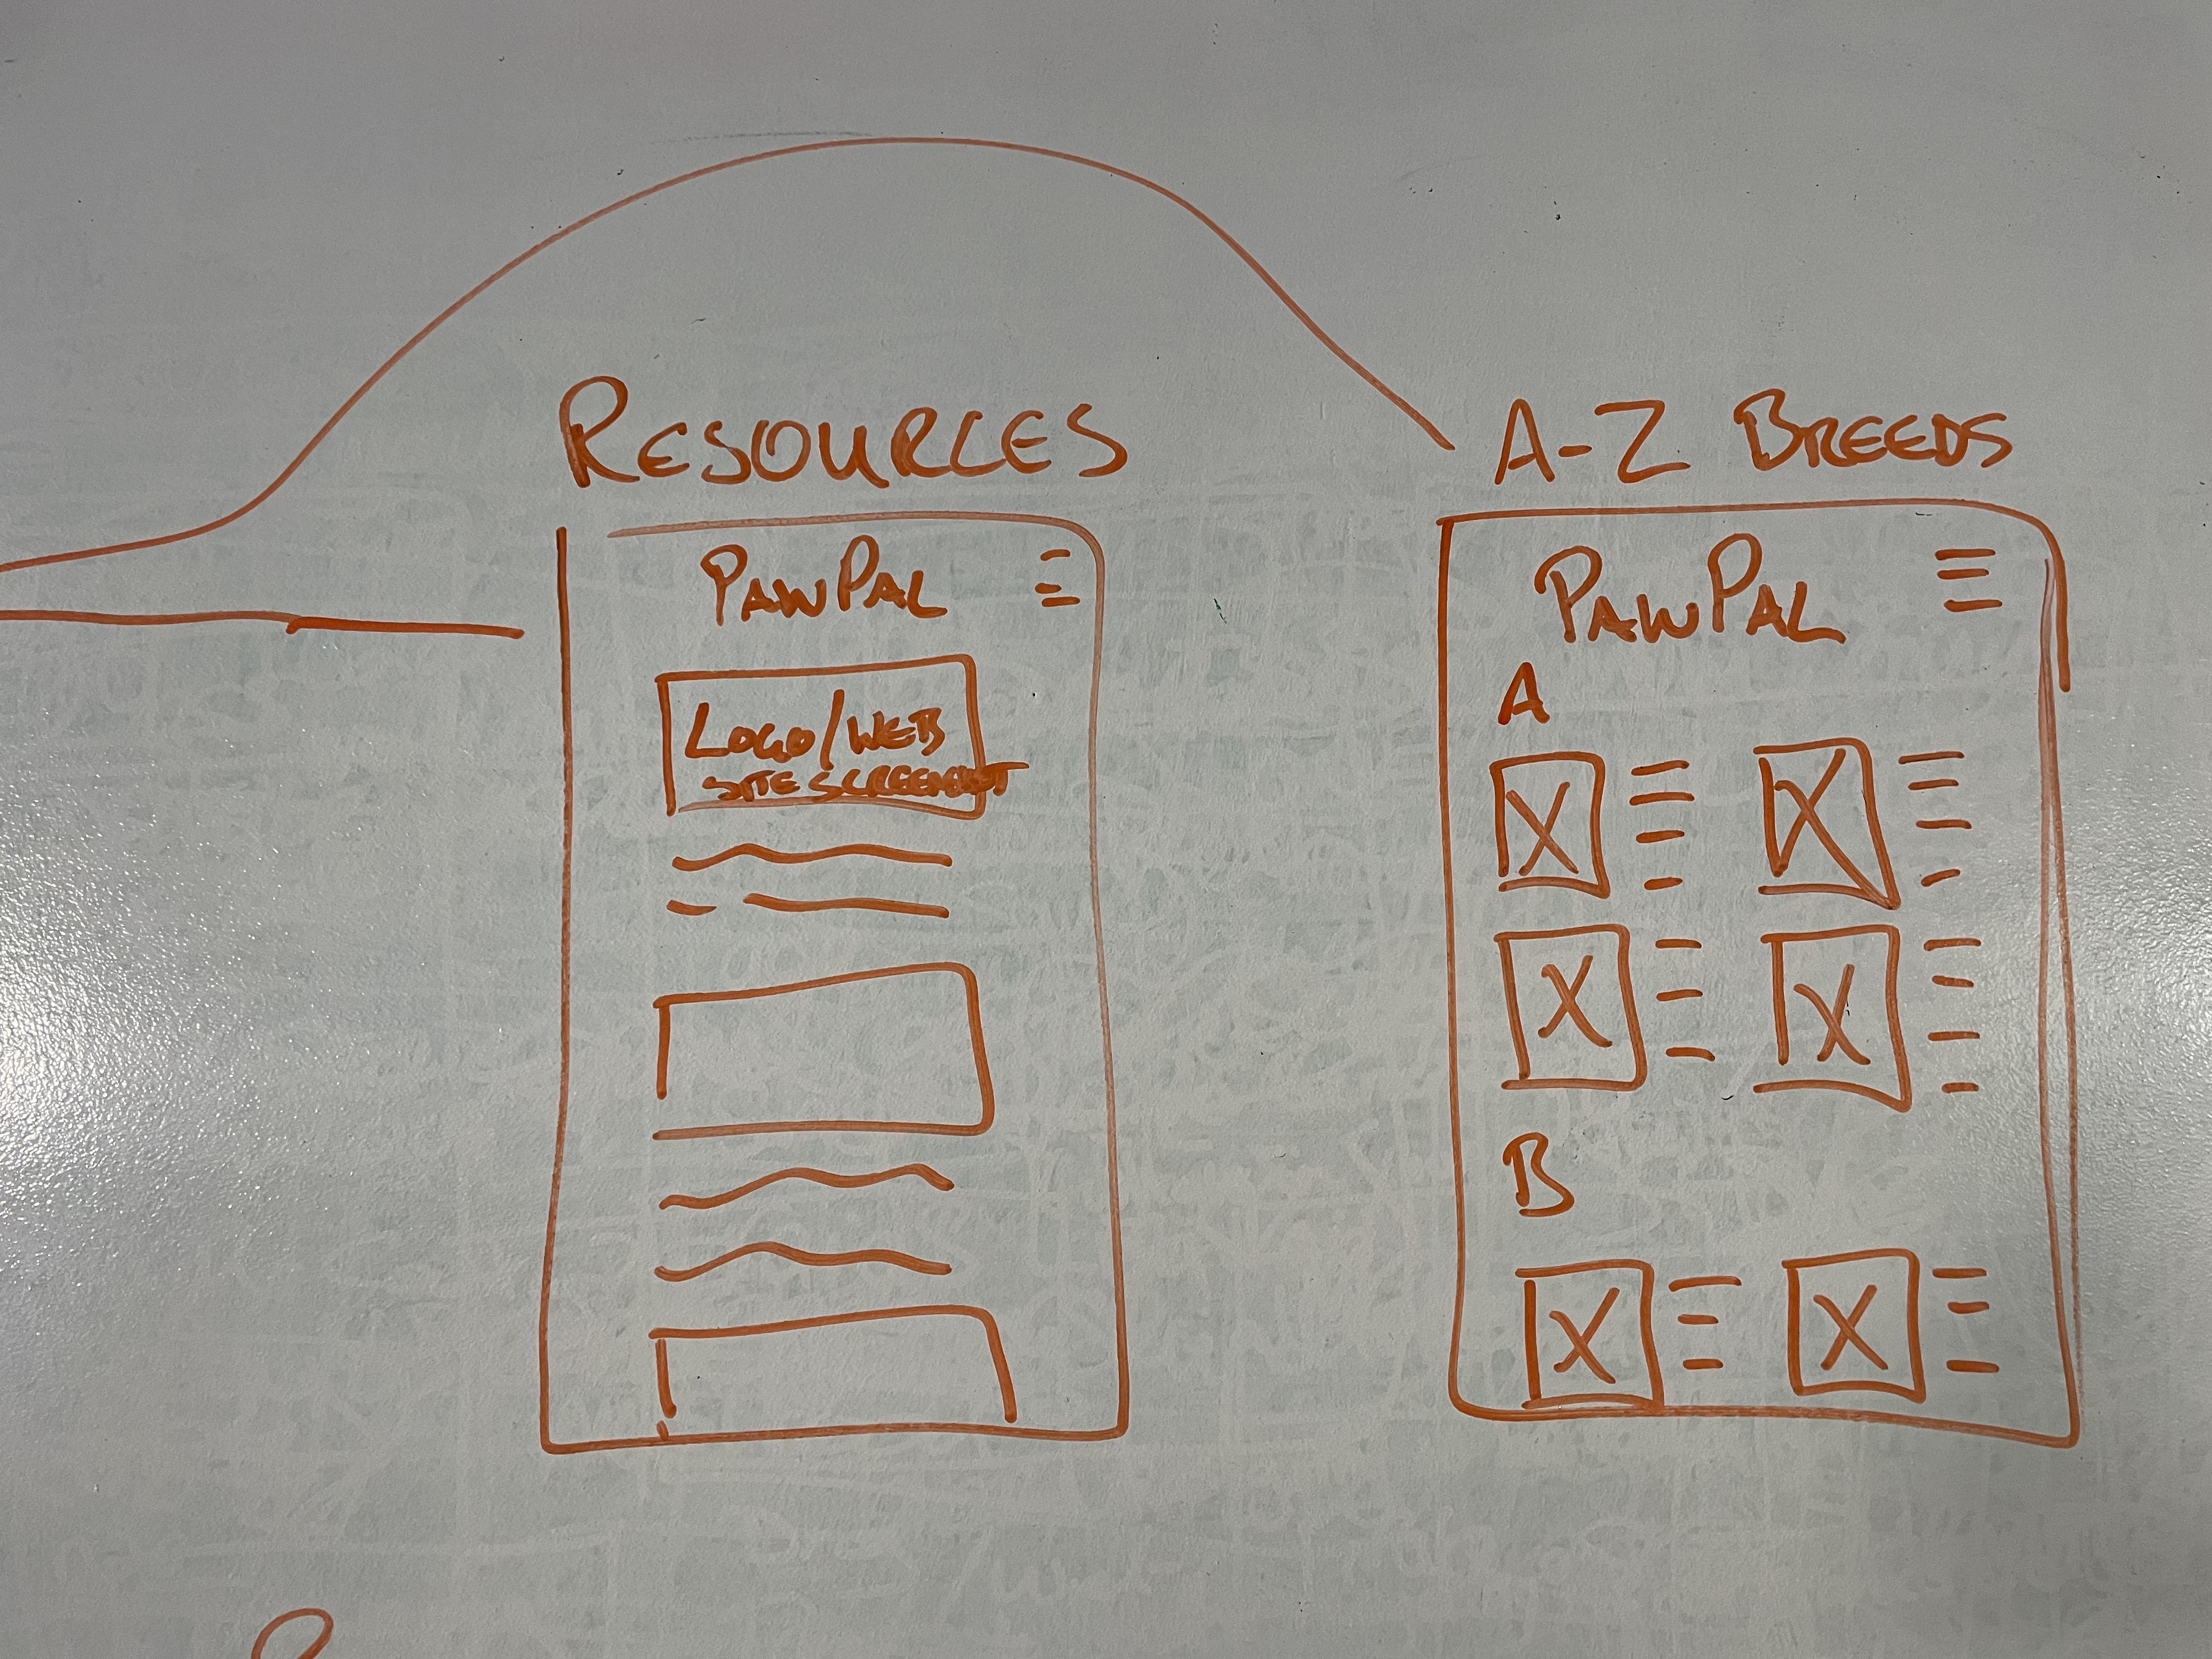 RESOURCES
PAWPAL
LOGO/WEB
SITE SCREENSHOT
A-Z BREEDS
PAWPAL
A
B